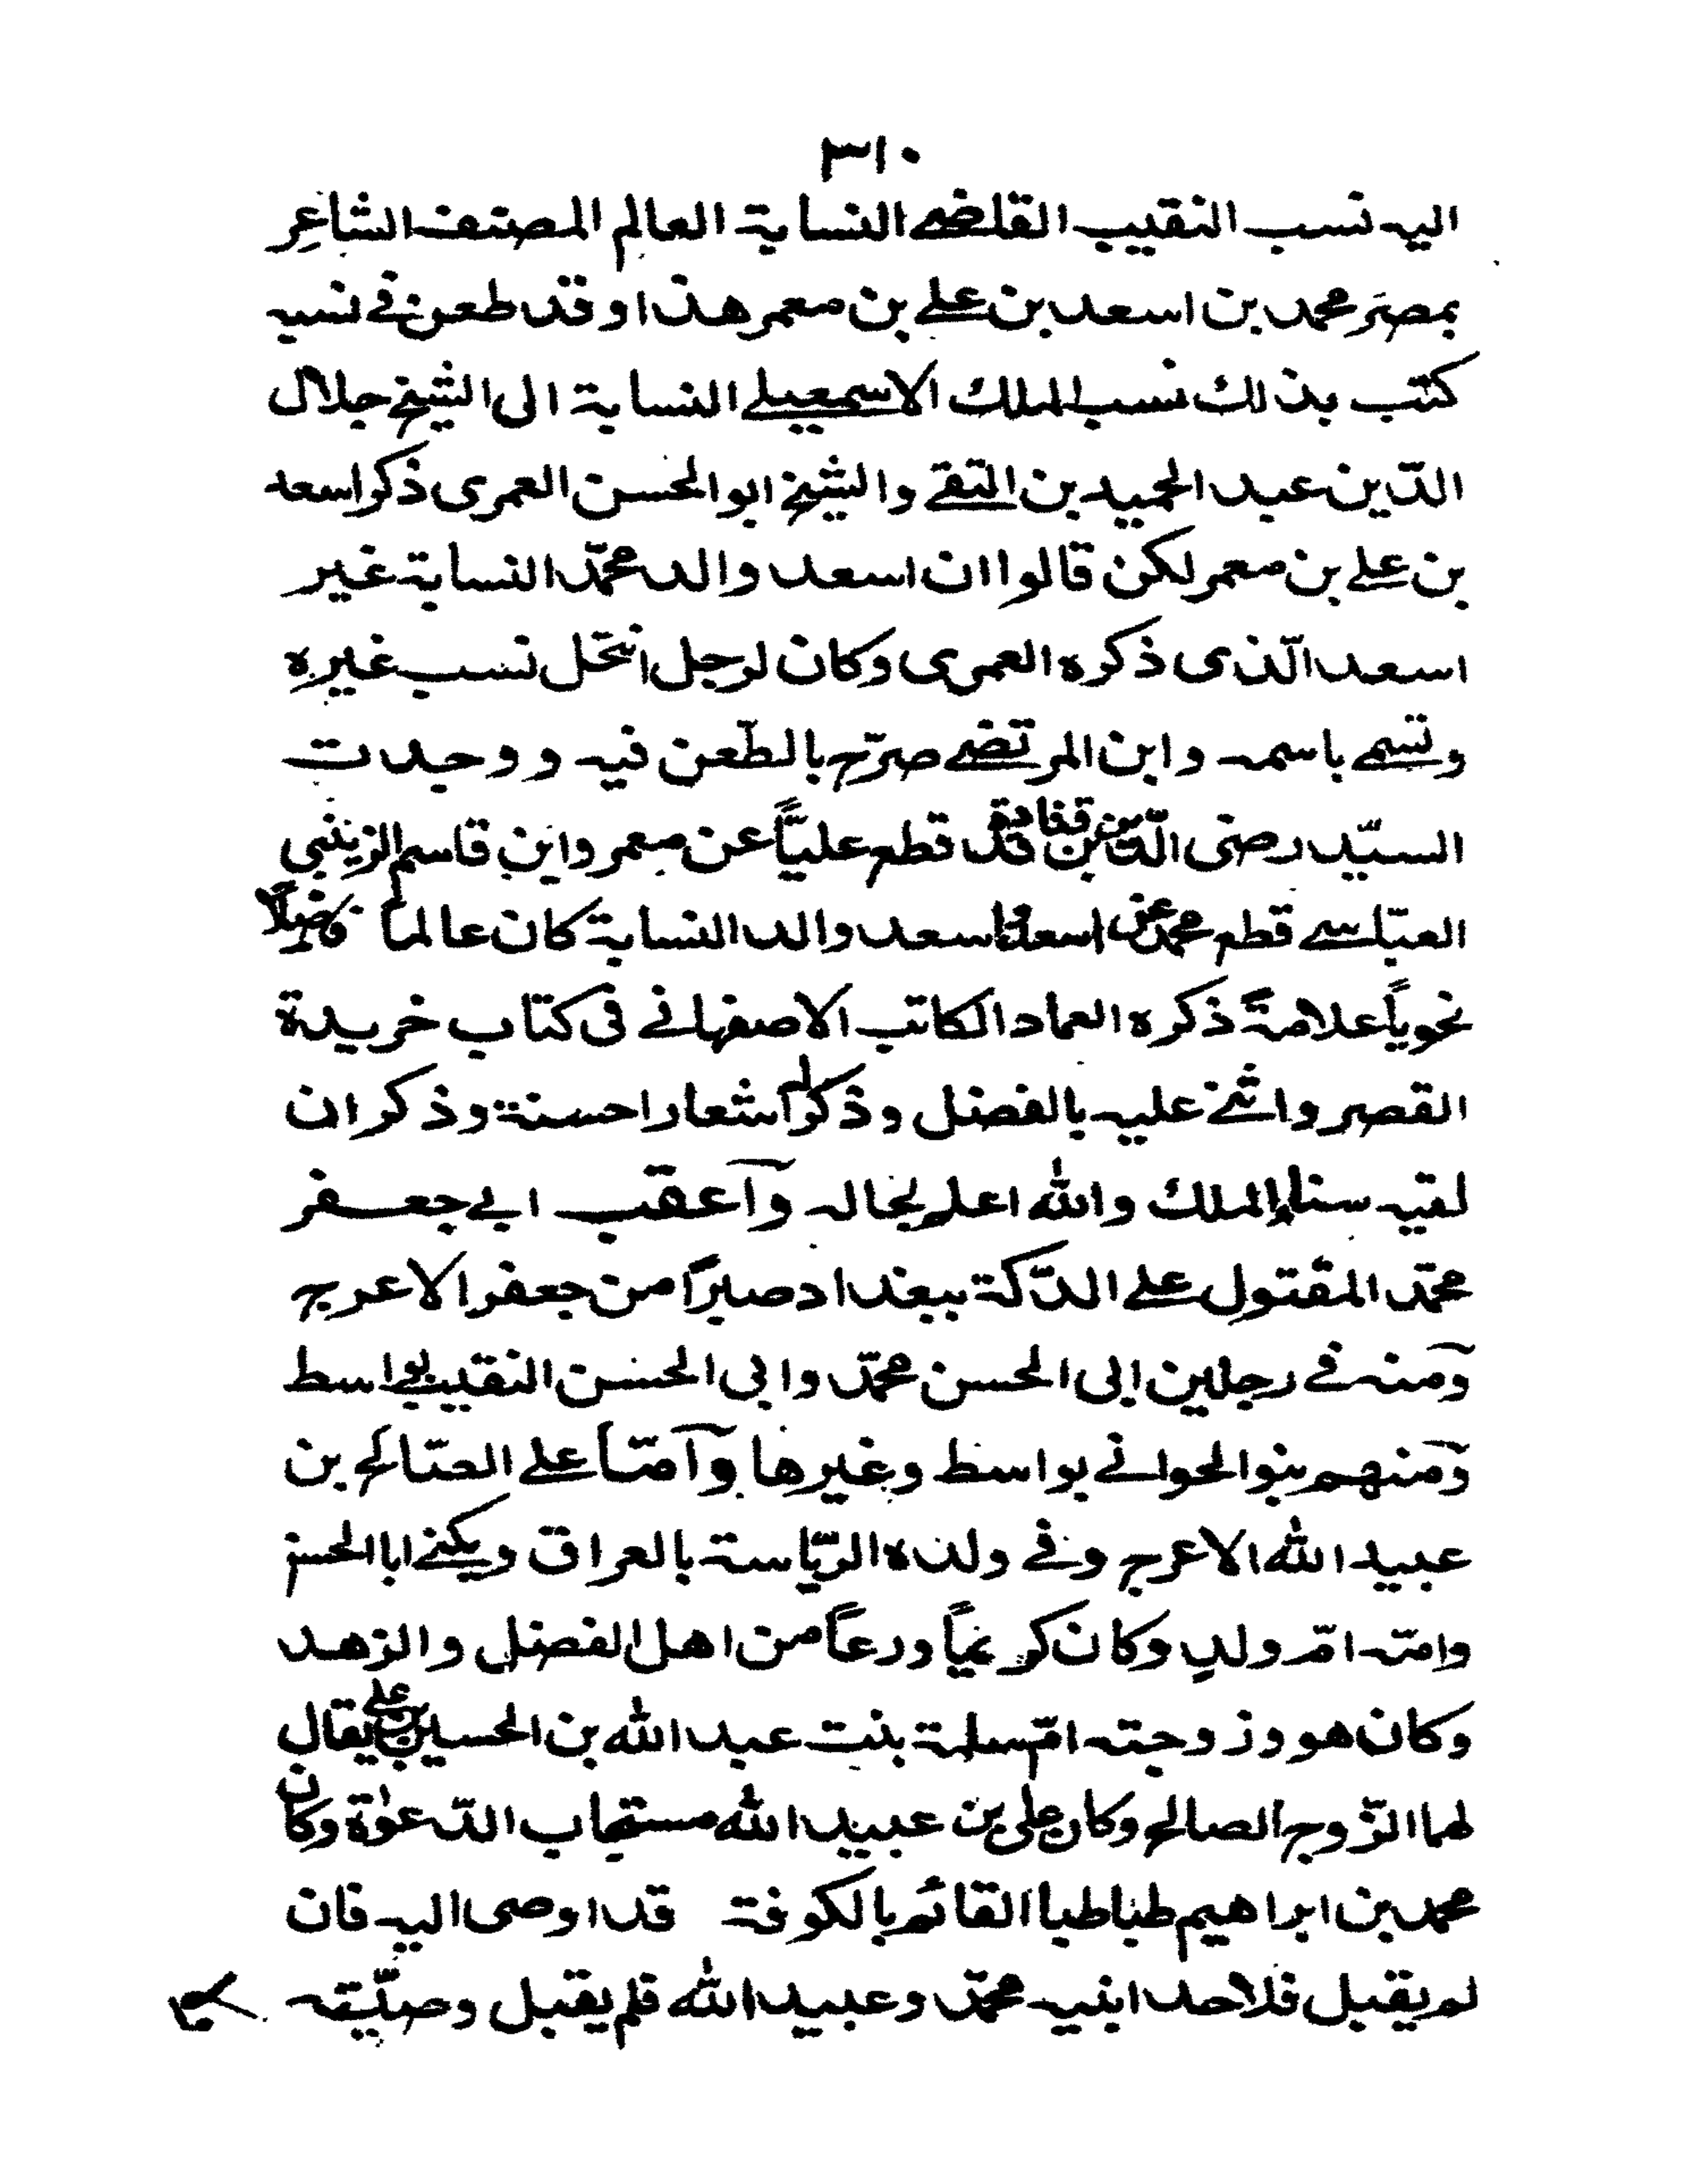 ٣١٠
اليه نسب النقيب القاضي النسابة العالم المصنف الشاعر
بمصر محمد بن اسعد بن علي بن معمر هذا وقد طعن في نسبه
كتب بذلك نسب الملك الاسمعيلي النسابة الى الشيخ جلال
الدّين عبد الحميد بن التقي والشيخ ابو الحسن العمرى ذكر اسعد
بن علي بن معمر لكن قالوا ان اسعد والد محمّد النسابة غير
اسعد الّذى ذكره العمرى وكان لرجل انتحل نسب غيره
وتسمى باسمه وابن المرتضي صرّح بالطّعن فيه ووجدت
السيّد رضى الدّين بن قتادة قد قطع عليّاً عن معمر وابن قاسم الزينبي
العبّاسي قطع محمد عن اسعد واسعد والد النسابة كان عالماً فاضلاً
نحوياً علامةً ذكره العماد الكاتب الاصفهاني فى كتاب خريدة
القصر واثنى عليه بالفضل وذكر له اشعارا حسنة وذكر ان
لقيه سناء الملك والله اعلم بحاله وآعقب ابي جعفر
محمّد المقتول علي الدّكة ببغداد صبراً من جعفر الاعرج
ومنه في رجلين ابى الحسن محمّد وابى الحسن النقيب بواسط
ومنهم بنو الحواني بواسط وغيرها وآمّا علي الصّالح بن
عبيد الله الاعرج وفي ولده الريّاسة بالعراق ويكني ابا الحسن
وامّه امّ ولدٍ وكان كريماً ورعاً من اهل الفضل والزهد
وكان هو وزوجته امّ سلمة بنت عبد الله بن الحسين بن علي يقال
لهما الزّوج الصالح وكان على بن عبيد الله مستجاب الدّعوة وكان
محمد بن ابراهيم طباطبا القائم بالكوفة قد اوصى اليه فان
لم يقبل فلاحد ابنيه محمّد وعبيد الله فلم يقبل وصيّته